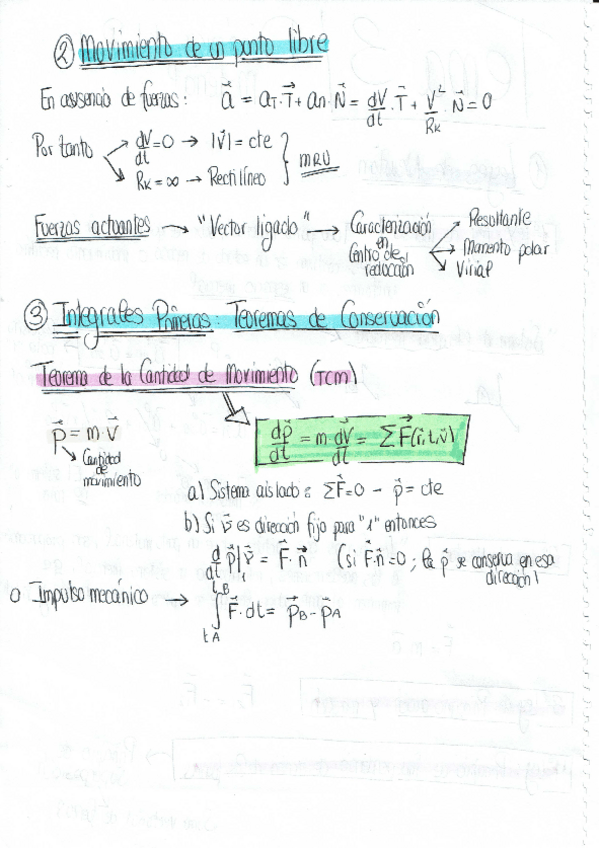 ② Movimiento de un punto libre
En ausencio de fuerzas: a⃗ = aT·T⃗ + an·N⃗ = dV/dt·T⃗ + V²/RK·N⃗ = 0
Por tanto
dV/dt = 0 → |V⃗| = cte
RK = ∞ → Rectilíneo
MRU
Fuerzas actuantes → "Vector ligado" → Caracterización en Centro de reducción
Resultante
Momento polar
Virial
③ Integrales Primeras: Teoremas de Conservación
Teorema de la Cantidad de Movimiento (TCM)
p⃗ = m·v⃗
Cantidad de movimiento
dp⃗/dt = m·dV⃗/dt = ΣF⃗(r⃗,t,v⃗)
a) Sistema aislado: ΣF⃗=0 - p⃗ = cte
b) Si v⃗ es dirección fijo para "1" entonces
d/dt p⃗|v⃗ = F⃗·n⃗ (si F⃗·n⃗=0; la p⃗ se conserva en esa dirección)
o Impulso mecánico → ∫tA tB F⃗·dt = p⃗B - p⃗A